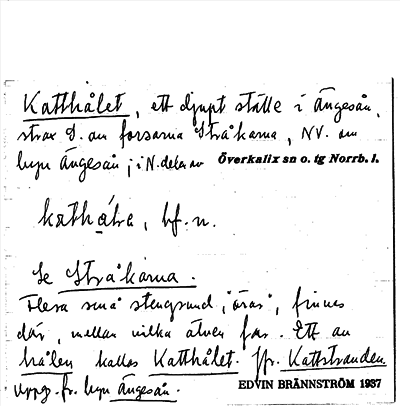 Katthålet, ett djupt ställe i Ängesån,
strax S. om forsarna Stråkarna, NV. om
byn Ängesån, i N. delen av Överkalix sn o. tg Norrb. l.
kathå̱lra, bf. n.
Se Stråkarna.
Flera små stengrund, "örar", finnes
där, mellan vilka älven far. Ett av
hålen kallas Katthålet. Jfr. Kattstranden
Uppg. fr. byn Ängesån. EDVIN BRÄNNSTRÖM 1937